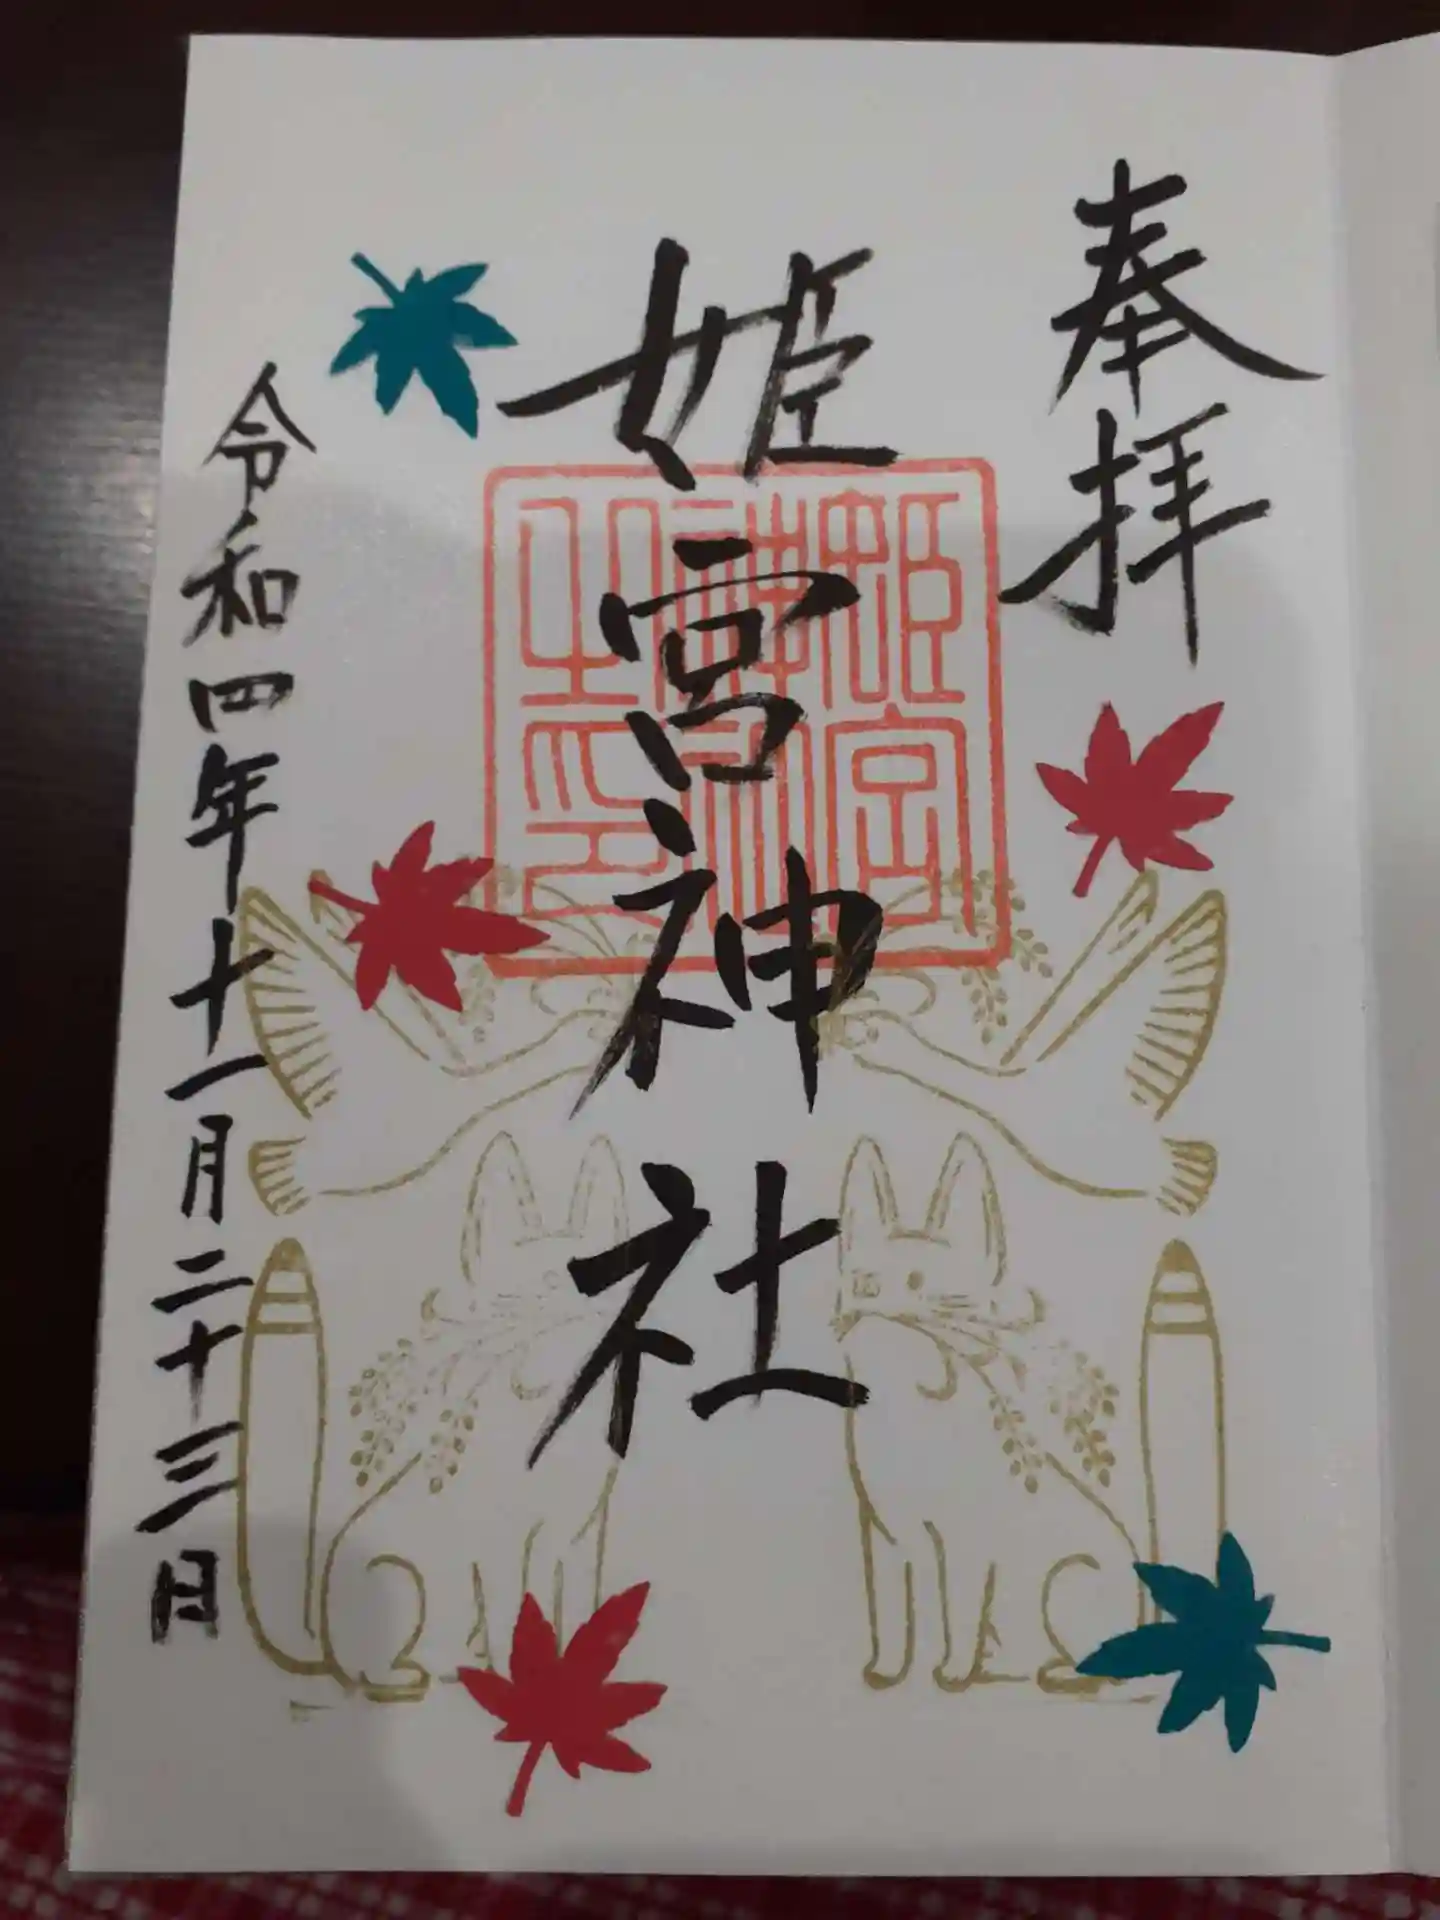 奉拝
姫宮神社
姫宮神社之印
令和四年十一月二十三日